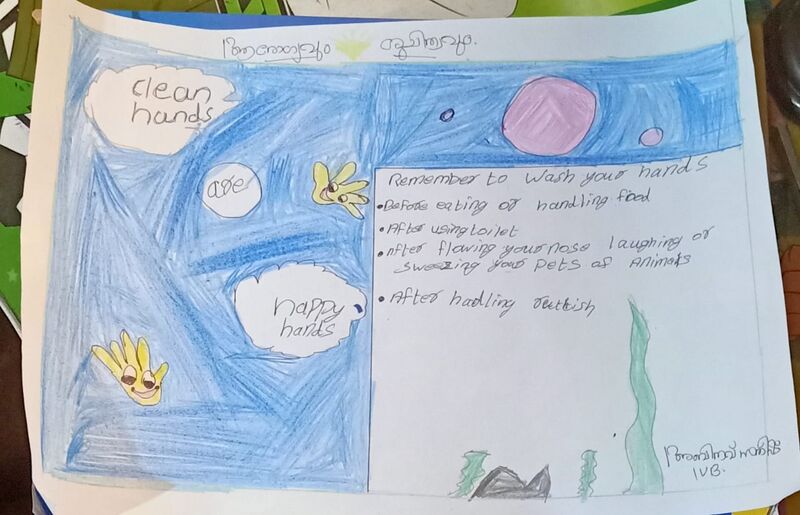 ആരോഗ്യവും ശുചിത്വവും.
clean
hands
are
happy
hands
Remember to wash your hands
• Before eating or handling food
• After using toilet
• After flowing your nose laughing or
sweezing your pets of Animals
• After hadling ruttish
IVB.